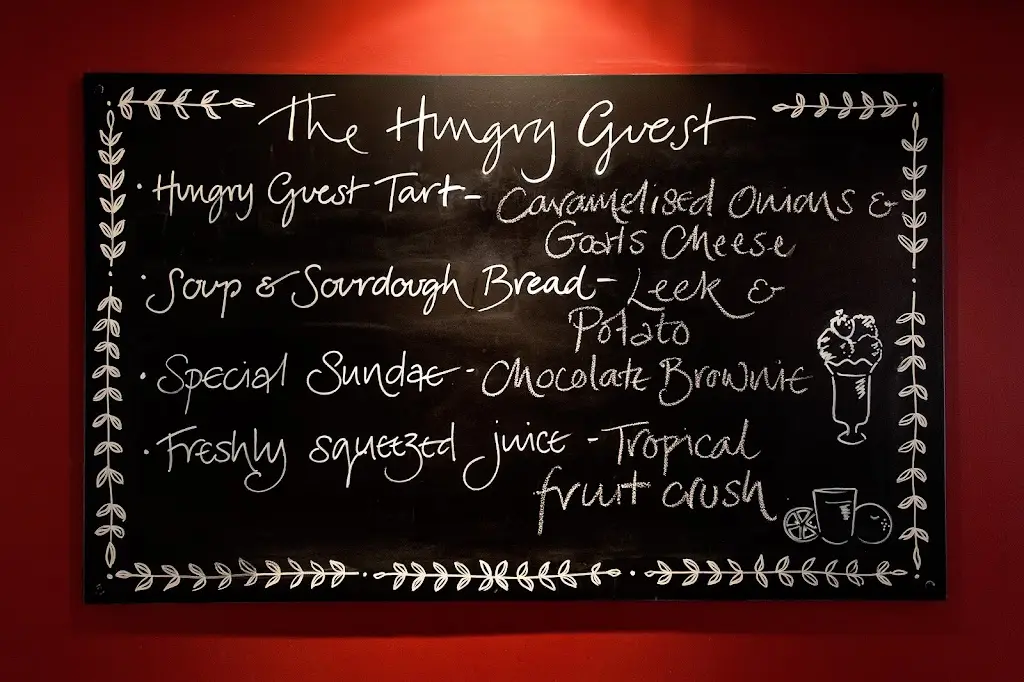 The Hungry Guest
· Hungry Guest Tart - Caramelised Onions &
Goats Cheese
· Soup & Sourdough Bread - Leek &
Potato
· Special Sundae - Chocolate Brownie
· Freshly squeezed juice - Tropical
fruit crush